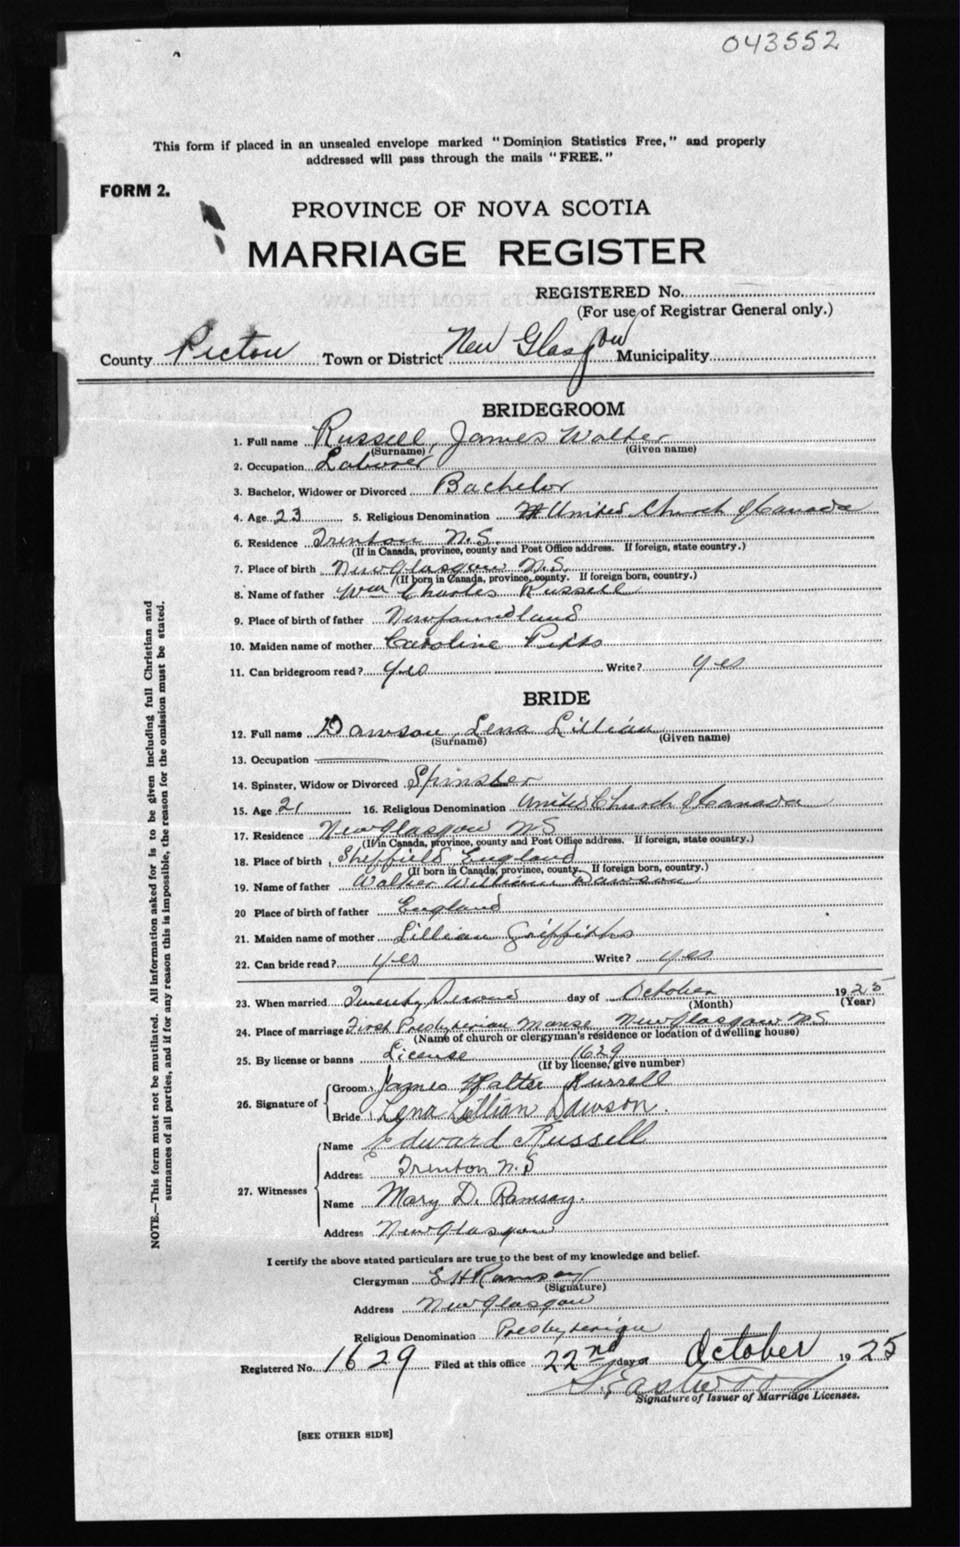 043552
This form if placed in an unsealed envelope marked "Dominion Statistics Free," and properly
addressed will pass through the mails "FREE."
FORM 2.
PROVINCE OF NOVA SCOTIA
MARRIAGE REGISTER
REGISTERED No.
(For use of Registrar General only.)
County Pictou Town or District New Glasgow Municipality
BRIDEGROOM
1. Full name Russell, James Walter
(Surname) (Given name)
2. Occupation Laborer
3. Bachelor, Widower or Divorced Bachelor
4. Age 23 5. Religious Denomination United Church of Canada
6. Residence Trenton N.S.
(If in Canada, province, county and Post Office address. If foreign, state country.)
7. Place of birth New Glasgow N.S.
(If born in Canada, province, county. If foreign born, country.)
8. Name of father Wm Charles Russell
9. Place of birth of father Newfoundland
10. Maiden name of mother Caroline
11. Can bridegroom read? yes Write? yes
BRIDE
12. Full name Dawson, Lena Lillian
(Surname) (Given name)
13. Occupation
14. Spinster, Widow or Divorced Spinster
15. Age 21 16. Religious Denomination United Church of Canada
17. Residence New Glasgow N.S
(If in Canada, province, county and Post Office address. If foreign, state country.)
18. Place of birth Sheffield England
(If born in Canada, province, county. If foreign born, country.)
19. Name of father Walter William Dawson
20 Place of birth of father England
21. Maiden name of mother Lillian Griffiths
22. Can bride read? yes Write? yes
23. When married Twenty Second day of October 1925
(Month) (Year)
24. Place of marriage First Presbyterian Manse New Glasgow N.S
(Name of church or clergyman's residence or location of dwelling house)
25. By license or banns License 1629
(If by license, give number)
26. Signature of
Groom James Walter Russell
Bride Lena Lillian Dawson.
27. Witnesses
Name Edward Russell
Address Trenton N.S
Name Mary D. Ramsay.
Address New Glasgow
I certify the above stated particulars are true to the best of my knowledge and belief.
Clergyman E H Ramsay
(Signature)
Address New Glasgow
Religious Denomination Presbyterian
Registered No. 1629 Filed at this office 22nd day of October 1925
Eastwood
Signature of Issuer of Marriage Licenses.
[SEE OTHER SIDE]
NOTE.—This form must not be mutilated. All information asked for is to be given including full Christian and
surnames of all parties, and if for any reason this is impossible, the reason for the omission must be stated.